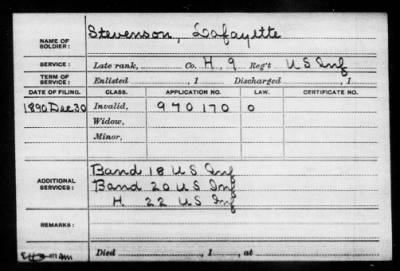 Stevenson, Lafayette
NAME OF SOLDIER:
SERVICE: Late rank, Co. H, 9 Reg't U S Inf
TERM OF SERVICE: Enlisted , 1 Discharged , 1
DATE OF FILING. CLASS. APPLICATION NO. LAW. CERTIFICATE NO.
1890 Dec 30 Invalid, 970170 0
Widow,
Minor,
ADDITIONAL SERVICES:
Band 18 U S Inf
Band 20 U S Inf
H 22 U S Inf
REMARKS:
Died , 1 , at